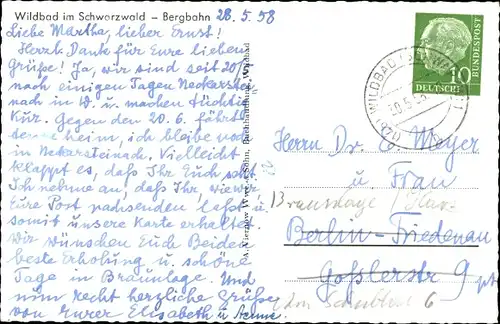 Wildbad im Schwarzwald – Bergbahn
28.5.58
Liebe Martha, lieber Ernst!
Herzl. Dank für Eure lieben
Grüße! Ja, wir sind seit 20/
nach einigen Tagen Neckarstei
nach in W. u. machen tüchtig
Kur. Gegen den 20.6. fährt
heim, ich bleibe noch
in Neckarsteinach. Vielleicht
klappt es, daß Ihr Euch seht.
Ich nehme an, daß Ihr, wie wir
Eure Post nachsenden laßt u.
somit unsere Karte erhaltet.
Wir wünschen Euch Beiden
beste Erholung u. schöne
Tage in Braunlage. Und
nun recht herzliche Grüße
von Eurer Elisabeth u.
Buchhandlung, Wildbad
DEUTSCHE
BUNDESPOST
10
WILDBAD (SCHWARZW)
Herrn Dr. E. Meyer
u. Frau
Braunlage / Harz
Berlin-Friedenau
Goßlerstr. 9 pt
6